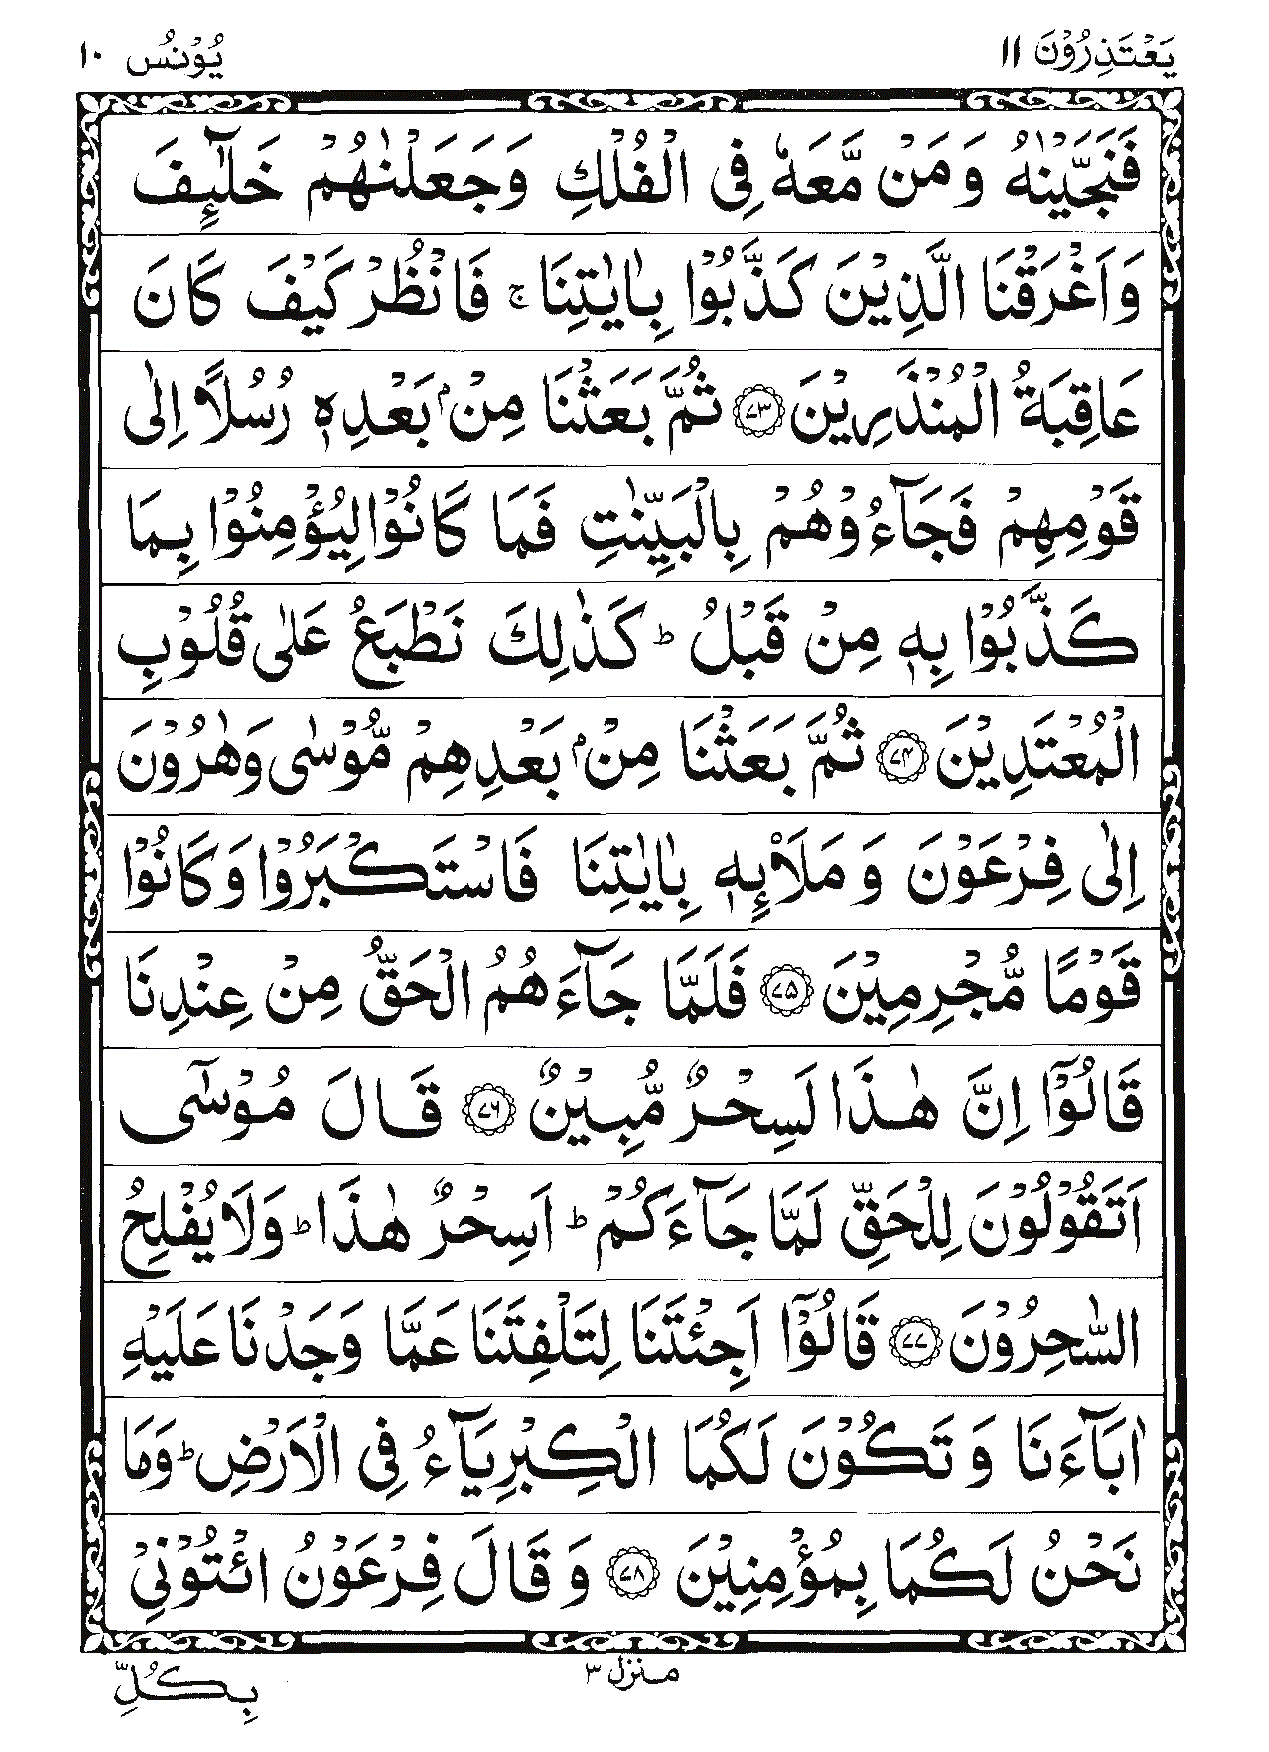 يَعْتَذِرُوْنَ ١١
يُوْنُسْ ١٠
فَنَجَّيْنٰهُ وَ مَنْ مَّعَهٗ فِى الْفُلْكِ وَجَعَلْنٰهُمْ خَلٰٓئِفَ
وَاَغْرَقْنَا الَّذِيْنَ كَذَّبُوْا بِاٰيٰتِنَا ۚ فَانْظُرْ كَيْفَ كَانَ
عَاقِبَةُ الْمُنْذَرِيْنَ ﴿٧٣﴾ ثُمَّ بَعَثْنَا مِنْۢ بَعْدِهٖ رُسُلًا اِلٰى
قَوْمِهِمْ فَجَآءُوْهُمْ بِالْبَيِّنٰتِ فَمَا كَانُوْا لِيُؤْمِنُوْا بِمَا
كَذَّبُوْا بِهٖ مِنْ قَبْلُ ؕ كَذٰلِكَ نَطْبَعُ عَلٰى قُلُوْبِ
الْمُعْتَدِيْنَ ﴿٧٤﴾ ثُمَّ بَعَثْنَا مِنْۢ بَعْدِهِمْ مُّوْسٰى وَهٰرُوْنَ
اِلٰى فِرْعَوْنَ وَ مَلَا۟ئِهٖ بِاٰيٰتِنَا فَاسْتَكْبَرُوْا وَكَانُوْا
قَوْمًا مُّجْرِمِيْنَ ﴿٧٥﴾ فَلَمَّا جَآءَهُمُ الْحَقُّ مِنْ عِنْدِنَا
قَالُوْۤا اِنَّ هٰذَا لَسِحْرٌ مُّبِيْنٌ ﴿٧٦﴾ قَالَ مُوْسٰٓى
اَتَقُوْلُوْنَ لِلْحَقِّ لَمَّا جَآءَكُمْ ؕ اَسِحْرٌ هٰذَا ؕ وَلَا يُفْلِحُ
السّٰحِرُوْنَ ﴿٧٧﴾ قَالُوْۤا اَجِئْتَنَا لِتَلْفِتَنَا عَمَّا وَجَدْنَا عَلَيْهِ
اٰبَآءَنَا وَ تَكُوْنَ لَكُمَا الْكِبْرِيَآءُ فِى الْاَرْضِ ؕ وَمَا
نَحْنُ لَكُمَا بِمُؤْمِنِيْنَ ﴿٧٨﴾ وَ قَالَ فِرْعَوْنُ ائْتُوْنِيْ
منزل ٣
بِكُلِّ